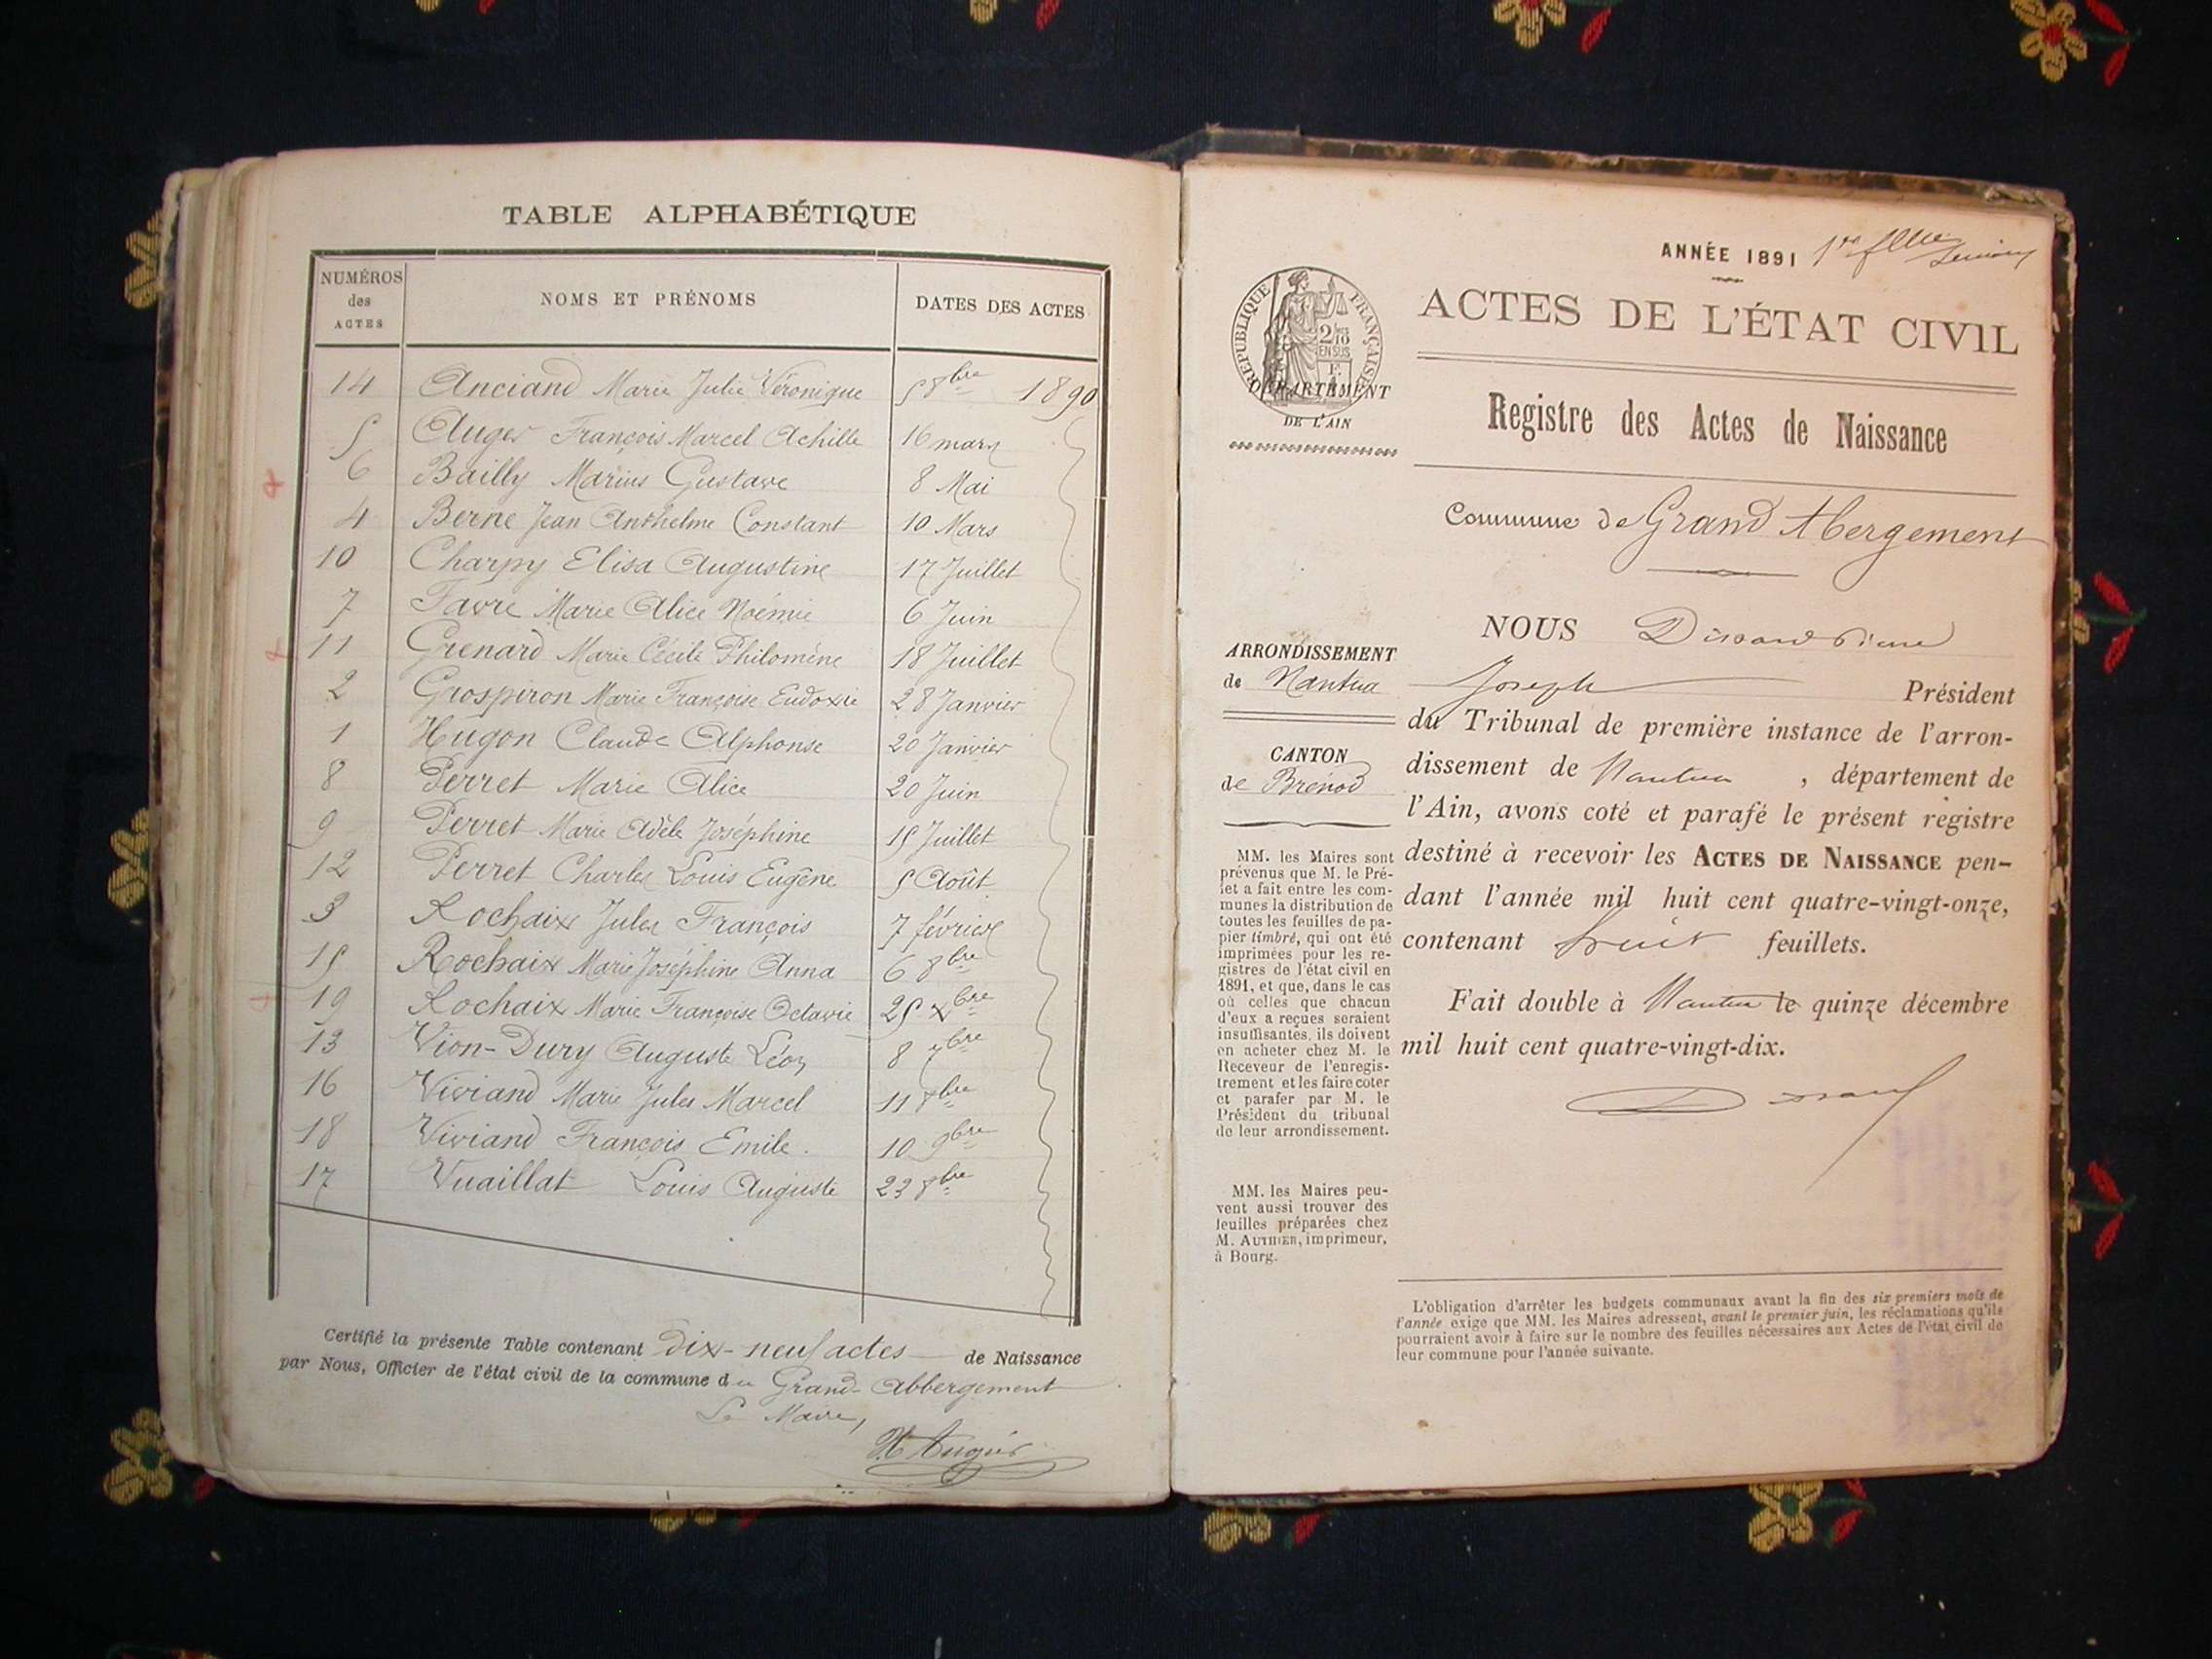 TABLE ALPHABÉTIQUE
NUMÉROS des ACTES NOMS ET PRÉNOMS DATES DES ACTES
14 Anciand Marie Julie Véronique 5 8bre 1890
5 Auger François Marcel Achille 16 mars
6 Bailly Marius Gustave 8 Mai
4 Berne Jean Anthelme Constant 10 Mars
10 Charpy Elisa Augustine 17 Juillet
7 Favre Marie Alice Noémie 6 Juin
11 Grenard Marie Cécile Philomène 18 Juillet
2 Grospiron Marie Françoise Eudoxie 28 Janvier
1 Hugon Claude Alphonse 20 Janvier
8 Perret Marie Alice 20 Juin
9 Perret Marie Adèle Joséphine 15 Juillet
12 Perret Charles Louis Eugène 5 Août
3 Rochaix Jules François 7 février
15 Rochaix Marie Joséphine Anna 6 8bre
19 Rochaix Marie Françoise Octavie 25 xbre
13 Vion-Dury Auguste Léon 8 7bre
16 Viviand Marie Jules Marcel 11 8bre
18 Viviand François Emile. 10 9bre
17 Vuaillat Louis Auguste 23 8bre
Certifié la présente Table contenant Dix-neuf actes de Naissance
par Nous, Officier de l'état civil de la commune du Grand-Abbergement
Le Maire,
Augér
ANNÉE 1891
RÉPUBLIQUE FRANÇAISE
2/10
EN SUS
ACTES DE L'ÉTAT CIVIL
DÉPARTEMENT
DE L'AIN
Registre des Actes de Naissance
Commune de Grand Abergement
NOUS
ARRONDISSEMENT
de Nantua
Joseph Président
du Tribunal de première instance de l'arron-
dissement de Nantua, département de
l'Ain, avons coté et parafé le présent registre
destiné à recevoir les ACTES DE NAISSANCE pen-
dant l'année mil huit cent quatre-vingt-onze,
contenant huit feuillets.
Fait double à Nantua le quinze décembre
mil huit cent quatre-vingt-dix.
CANTON
de Brénod
MM. les Maires sont
prévenus que M. le Pré-
fet a fait entre les com-
munes la distribution de
toutes les feuilles de pa-
pier timbré, qui ont été
imprimées pour les re-
gistres de l'état civil en
1891, et que, dans le cas
où celles que chacun
d'eux a reçues seraient
insuffisantes, ils doivent
en acheter chez M. le
Receveur de l'enregis-
trement et les faire coter
et parafer par M. le
Président du tribunal
de leur arrondissement.
MM. les Maires peu-
vent aussi trouver des
feuilles préparées chez
M. AUTHIER, imprimeur,
à Bourg.
L'obligation d'arrêter les budgets communaux avant la fin des six premiers mois de
l'année exige que MM. les Maires adressent, avant le premier juin, les réclamations qu'ils
pourraient avoir à faire sur le nombre des feuilles nécessaires aux Actes de l'état civil de
leur commune pour l'année suivante.